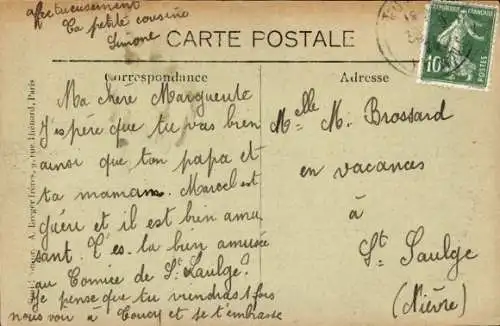 affectueusement
Ta petite cousine
Simone
CARTE POSTALE
Correspondance
Adresse
Ma chère Marguerite
J'espère que tu vas bien
ainsi que ton papa et
ta maman. Marcel est
guéri et il est bien amu
sant. T'es-la bien amusée
au Comice de St. Saulge?
Je pense que tu viendras 1 fois
nous voir à Toucy et je t'embrasse
Melle M. Brossard
en vacances
à
St. Saulge
(Nièvre)
REPUBLIQUE FRANÇAISE
10c
POSTES
A. Breger frères, 9, rue Thénard, Paris